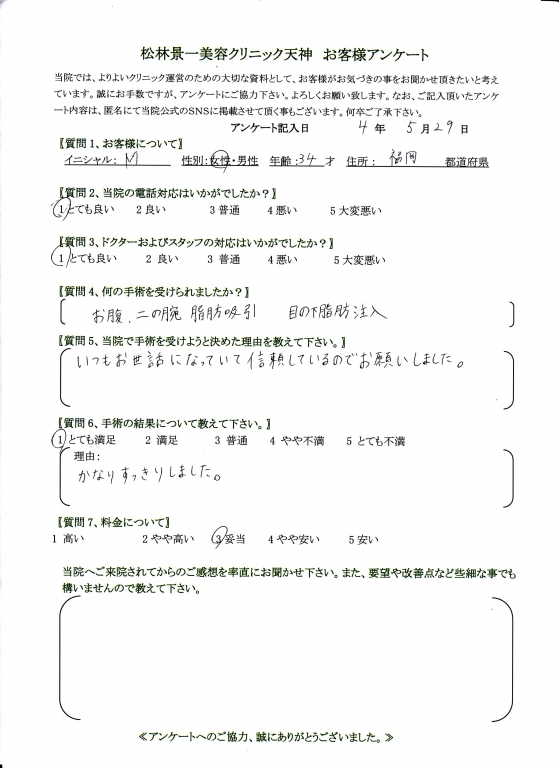 松林景一美容クリニック天神　お客様アンケート
当院では、よりよいクリニック運営のための大切な資料として、お客様がお気づきの事をお聞かせ頂きたいと考え
ています。誠にお手数ですが、アンケートにご協力下さい。よろしくお願い致します。なお、ご記入頂いたアンケ
ート内容は、匿名にて当院公式のSNSに掲載させて頂く事もございます。何卒ご了承下さい。
アンケート記入日　4 年 5 月 29 日
〖質問1、お客様について〗
イニシャル： M　性別：女性・男性　年齢：34 才　住所： 福岡　都道府県
〖質問2、当院の電話対応はいかがでしたか？〗
1 とても良い　2 良い　3 普通　4 悪い　5 大変悪い
〖質問3、ドクターおよびスタッフの対応はいかがでしたか？〗
1 とても良い　2 良い　3 普通　4 悪い　5 大変悪い
〖質問4、何の手術を受けられましたか？〗
お腹、二の腕 脂肪吸引　目の下脂肪注入
〖質問5、当院で手術を受けようと決めた理由を教えて下さい。〗
いつもお世話になっていて信頼しているのでお願いしました。
〖質問6、手術の結果について教えて下さい。〗
1 とても満足　2 満足　3 普通　4 やや不満　5 とても不満
理由：
かなりすっきりしました。
〖質問7、料金について〗
1 高い　2 やや高い　3 妥当　4 やや安い　5 安い
当院へご来院されてからのご感想を率直にお聞かせ下さい。また、要望や改善点など些細な事でも
構いませんので教えて下さい。
≪アンケートへのご協力、誠にありがとうございました。≫